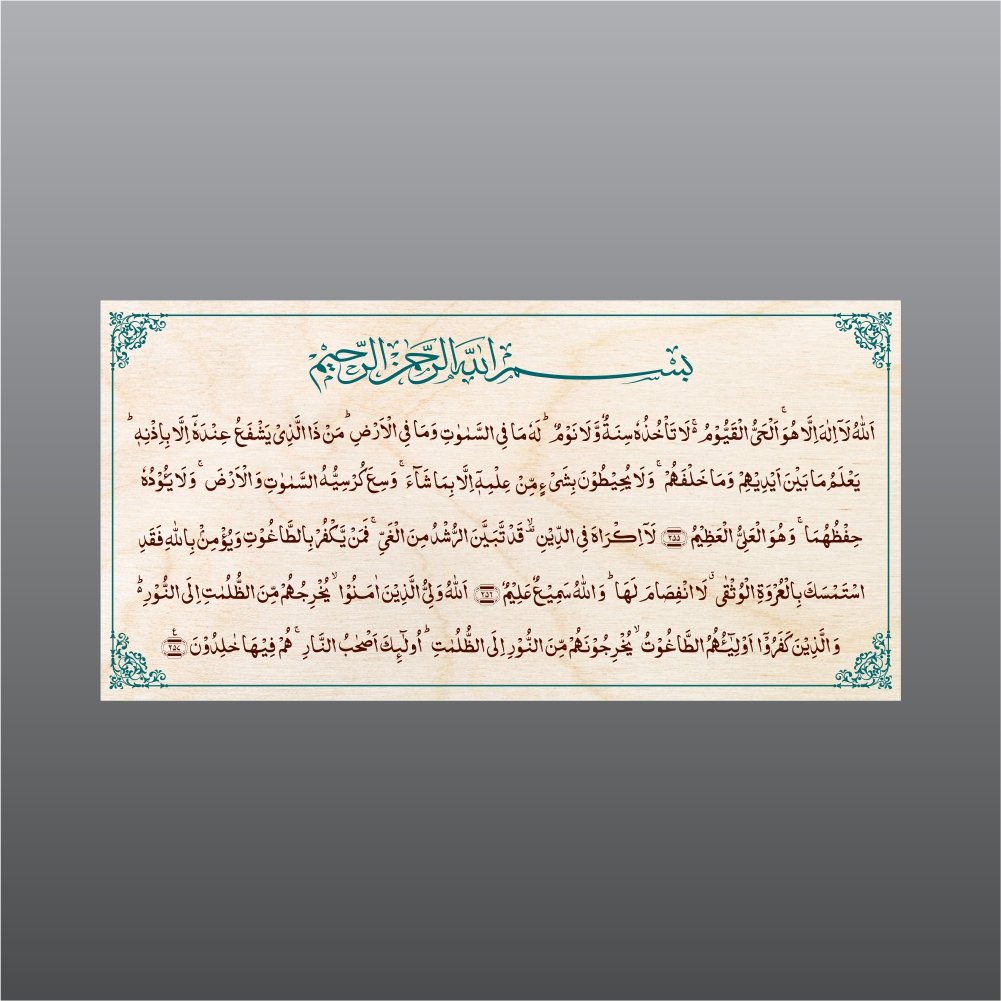 بِسْمِ اللهِ الرَّحْمٰنِ الرَّحِيْمِ
اَللهُ لَاۤ اِلٰهَ اِلَّا هُوَ ۚ اَلْحَيُّ الْقَيُّوْمُ ۬ ۚ لَا تَاْخُذُهٗ سِنَةٌ وَّلَا نَوْمٌ ؕ لَهٗ مَا فِي السَّمٰوٰتِ وَمَا فِي الْاَرْضِ ؕ مَنْ ذَا الَّذِيْ يَشْفَعُ عِنْدَهٗۤ اِلَّا بِاِذْنِهٖ ؕ
يَعْلَمُ مَا بَيْنَ اَيْدِيْهِمْ وَمَا خَلْفَهُمْ ۚ وَلَا يُحِيْطُوْنَ بِشَيْءٍ مِّنْ عِلْمِهٖۤ اِلَّا بِمَا شَآءَ ۚ وَسِعَ كُرْسِيُّهُ السَّمٰوٰتِ وَالْاَرْضَ ۚ وَلَا يَـُٔوْدُهٗ
حِفْظُهُمَا ۚ وَهُوَ الْعَلِيُّ الْعَظِيْمُ ﴿۲۵۵﴾ لَاۤ اِكْرَاهَ فِي الدِّيْنِ ۟ۙ قَدْ تَّبَيَّنَ الرُّشْدُ مِنَ الْغَيِّ ۚ فَمَنْ يَّكْفُرْ بِالطَّاغُوْتِ وَيُؤْمِنْۢ بِاللهِ فَقَدِ
اسْتَمْسَكَ بِالْعُرْوَةِ الْوُثْقٰى ۗ لَا انْفِصَامَ لَهَا ؕ وَاللهُ سَمِيْعٌ عَلِيْمٌ ﴿۲۵۶﴾ اَللهُ وَلِيُّ الَّذِيْنَ اٰمَنُوْا ۙ يُخْرِجُهُمْ مِّنَ الظُّلُمٰتِ اِلَى النُّوْرِ ؕ۬
وَالَّذِيْنَ كَفَرُوْۤا اَوْلِيٰٓـُٔهُمُ الطَّاغُوْتُ ۙ يُخْرِجُوْنَهُمْ مِّنَ النُّوْرِ اِلَى الظُّلُمٰتِ ؕ اُولٰٓئِكَ اَصْحٰبُ النَّارِ ۚ هُمْ فِيْهَا خٰلِدُوْنَ ﴿۲۵۷﴾ ع